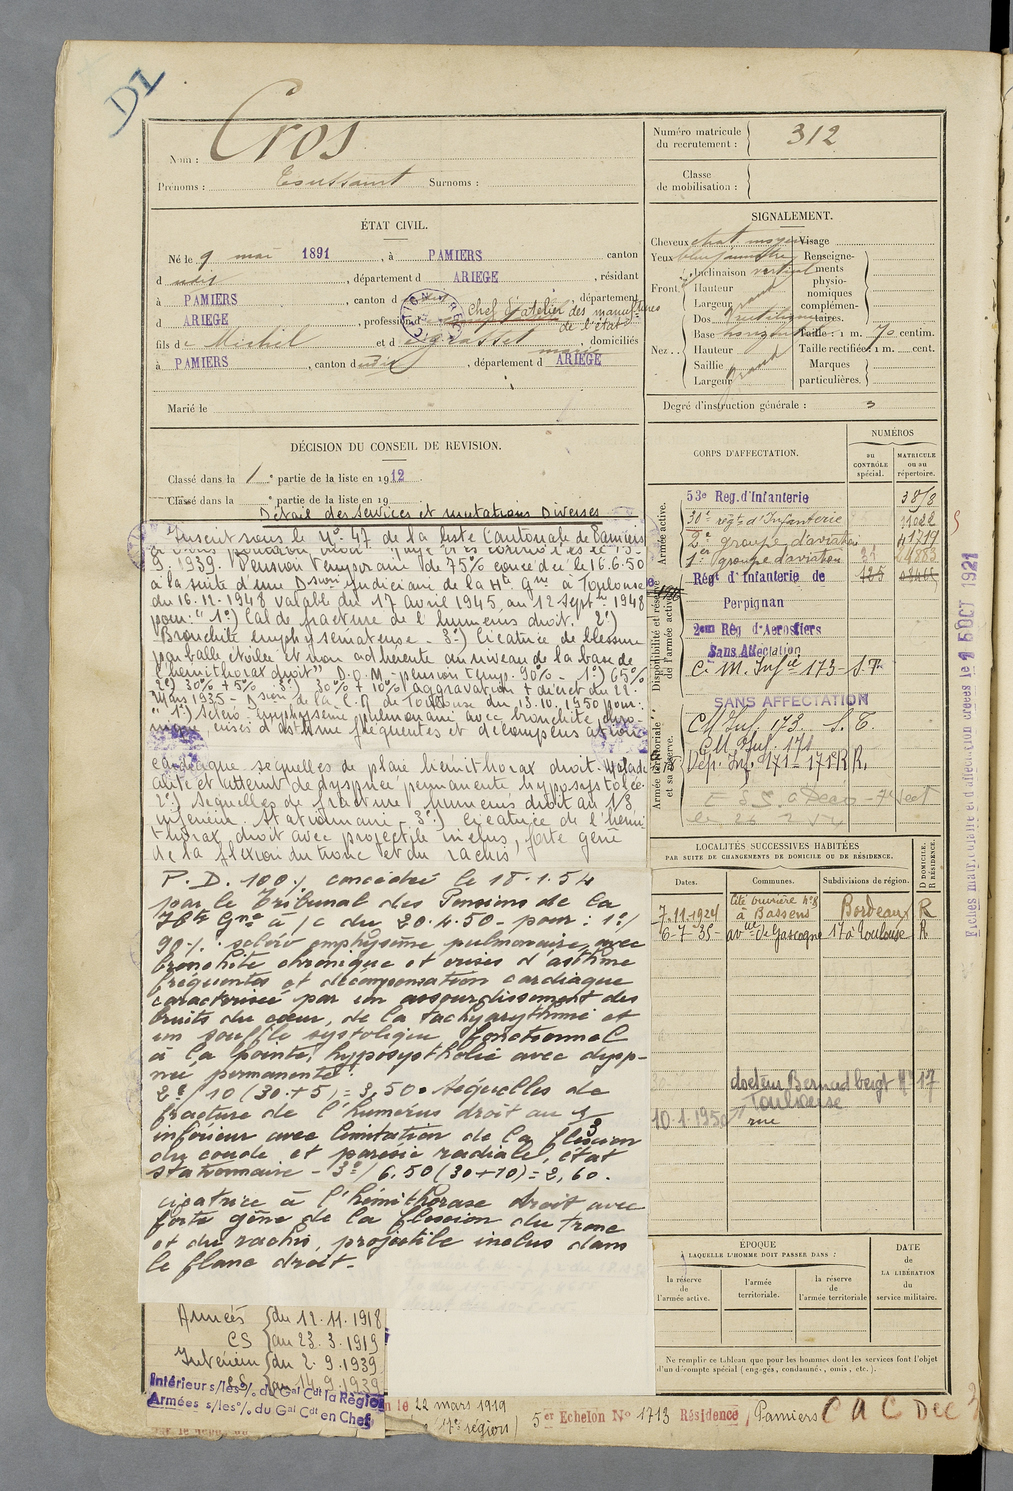 DZ
Nom : Cros
Prénoms : Toussaint Surnoms :
Numéro matricule du recrutement : 312
Classe de mobilisation :
ÉTAT CIVIL.
Né le 9 mai 1891, à PAMIERS canton
d udit, département d ARIEGE, résidant
à PAMIERS, canton d udit, département
d ARIEGE, profession d chef d'atelier des manufactures de l'état
fils de Michel et de grasset marie, domiciliés
à PAMIERS, canton dudit, département d ARIEGE
Marié le
SIGNALEMENT.
Cheveux chat moyen Visage
Yeux
Front Inclinaison vertical
Hauteur
Largeur grand
Nez Dos rectiligne
Base horizontale
Hauteur
Saillie
Largeur grand
Renseignements physionomiques complémentaires.
Taille : 1 m. 70 centim.
Taille rectifiée : 1 m. cent.
Marques particulières.
Degré d'instruction générale : 3
DÉCISION DU CONSEIL DE REVISION.
Classé dans la 1e partie de la liste en 1912
Classé dans la e partie de la liste en 19
Détail des services et mutations Diverses
Inscrit sous le No 47 de la liste Cantonale de Pamiers
9. 1939. Pension temporaire de 75% concédée le 16.6.50
à la suite d'une Dsion Judiciaire de la Hte Gne à Toulouse
du 16.11.1948 valable du 17 avril 1945 au 12 Septre 1948
pour : "1°) Cal de fracture de l'humérus droit. 2°)
Bronchite emphysémateuse. 3°) Cicatrice de blessure
par balle étoilée et non adhérente au niveau de la base de
l'hémithorax droit" D.O.M. pension temp. 90% - 1°) 65%
2°) 30% + 5% 3°) 30% + 10% aggravation + décret du 22
Mars 1935 - Dsion de la C.R de Toulouse du 13.10.1950 pour :
"1°) Scléro-emphysème pulmonaire avec bronchite chro-
nique, crises d'asthme fréquentes et décompensation
cardiaque séquelles de plaie hémithorax droit.
dyspnée permanente, hyposystolée.
2°) Séquelles de fracture humérus droit au 1/3
inférieur. Stationnaire - 3°) Cicatrice de l'hémi
thorax droit avec projectile inclus, forte gêne
de la flexion du tronc et du rachis
P. D. 100% concédée le 18.1.54
par le Tribunal des Pensions de la
Hte Gne à /c du 20.4.50 - pour : 1°/
90%. scléro emphysème pulmonaire, avec
bronchite chronique et crises d'asthme
fréquentes et décompensation cardiaque
caractérisée par un assourdissement des
bruits du cœur, de la tachyarythmie et
un souffle systolique fonctionnel
à la pointe, hyposystholie avec dysp-
née permanente.
2°/ 10 (30 + 5) = 3,50. Séquelles de
fracture de l'humérus droit au 1/3
inférieur avec limitation de la flexion
du coude et parésie radiale, état
stationnaire - 3°/ 6.50 (30+10) = 2,60.
cicatrice à l'hémithorase droit avec
forte gêne de la flexion du tronc
et du rachis, projectile inclus dans
le flanc droit.
CORPS D'AFFECTATION.
NUMÉROS
au CONTRÔLE spécial.
MATRICULE ou au répertoire.
Armée active.
53e Reg. d'Infanterie
30e régt d'Infanterie
2e groupe d'aviation 41719
1er groupe d'aviation
Disponibilité et réserve de l'armée active.
Régt d'Infanterie de Perpignan
2eme Rég d'Aerostiers
Sans Affectation
C. M. Infie 173 - S. T.
Armée territoriale et sa réserve.
SANS AFFECTATION
CM Inf. 173. S. T.
CM. Inf. 171
Dép. Inf. 171 - 171 R R.
LOCALITÉS SUCCESSIVES HABITÉES
PAR SUITE DE CHANGEMENTS DE DOMICILE OU DE RÉSIDENCE.
Dates. Communes. Subdivisions de région. D DOMICILE. R RÉSIDENCE.
7.11.1924 Cité ouvrière No 8 à Bassens Bordeaux R
6-7-35- avue de Gascogne 17 à Toulouse R
10-1-1950 rue docteur Bernard Toulouse
ÉPOQUE
À LAQUELLE L'HOMME DOIT PASSER DANS :
la réserve de l'armée active.
l'armée territoriale.
la réserve de l'armée territoriale
DATE de LA LIBÉRATION du service militaire.
Ne remplir ce tableau que pour les hommes dont les services font l'objet
d'un décompte spécial (engagés, condamnés, omis, etc.).
Fiches matriculaire et d'affectation créées le 15 OCT 1921
Armées du 12.11.1918
CS au 23.3.1919
Intérieur du 2.9.1939
CS au 14.9.1939
Intérieur s/les o/. du Gal Cdt la Région
Armées s/les o/. du Gal Cdt en Chef
le 22 mars 1919
(17e région)
5er Echelon No 1713 Résidence, Pamiers